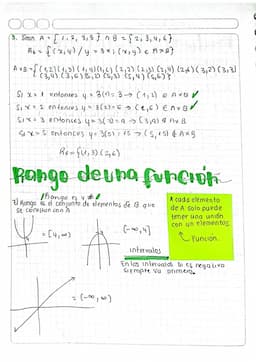 3. Sean A = {1, 2, 3, 5} n B = {2, 3, 4, 6}
R₆ = {(x,y) / y = 3x ; (x,y) ∈ A×B}
Si x = 1 entonces y = 3(1) = 3 → (1,3) ∈ A×B ✓
Si x = 2 entonces y = 3(2) = 6 → (2,6) ∈ A×B ✓
Si x = 3 entonces y = 3(3) = 9 → (3,9) ∉ A×B
Si x = 5 entonces y = 3(5) = 15 → (5,15) ∉ A×B
R₆ = {(1,3)(2,6)
Rango de una función
El Rango es el conjunto de elementos de B que
se conectan con A
A cada elemento
de A solo puede
tener una unión
con un elemento.
Función.
= [4, ∞)
[-∞, 4]
intervalos
En los intervalos si es negativo
siempre va primero.
= (-∞, ∞)